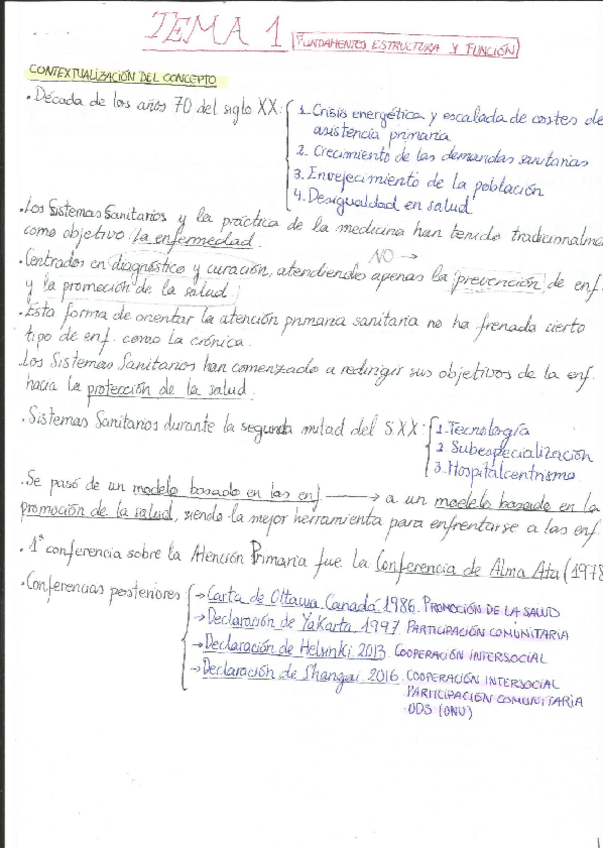 TEMA 1 FUNDAMENTOS ESTRUCTURA Y FUNCIÓN
CONTEXTUALIZACIÓN DEL CONCEPTO
• Década de los años 70 del siglo XX:
1. Crisis energética y escalada de costes de
asistencia primaria.
2. Crecimiento de las demandas sanitarias
3. Envejecimiento de la población
4. Desigualdad en salud
• Los Sistemas Sanitarios y la práctica de la medicina han tenido tradicionalme
como objetivo la enfermedad.
NO →
• Centrados en diagnóstico y curación, atendiendo apenas la prevención de enf.
y la promoción de la salud.
• Esta forma de orientar la atención primaria sanitaria no ha frenado cierto
tipo de enf. como la crónica.
• Los Sistemas Sanitarios han comenzado a redirigir sus objetivos de la enf.
hacia la protección de la salud.
• Sistemas Sanitarios durante la segunda mitad del S.XX:
1. Tecnología
2. Subespecialización
3. Hospitalcentrismo
• Se pasó de un modelo basado en las enf → a un modelo basado en la
promoción de la salud, siendo la mejor herramienta para enfrentarse a las enf.
• 1ª conferencia sobre la Atención Primaria fue la Conferencia de Alma Ata (1978
• Conferencias posteriores
→ Carta de Ottawa Canadá 1986. PROMOCIÓN DE LA SALUD
→ Declaración de Yakarta 1997. PARTICIPACIÓN COMUNITARIA
→ Declaración de Helsinki 2013. COOPERACIÓN INTERSOCIAL
→ Declaración de Shangai 2016. COOPERACIÓN INTERSOCIAL
PARTICIPACIÓN COMUNITARIA
ODS (ONU)